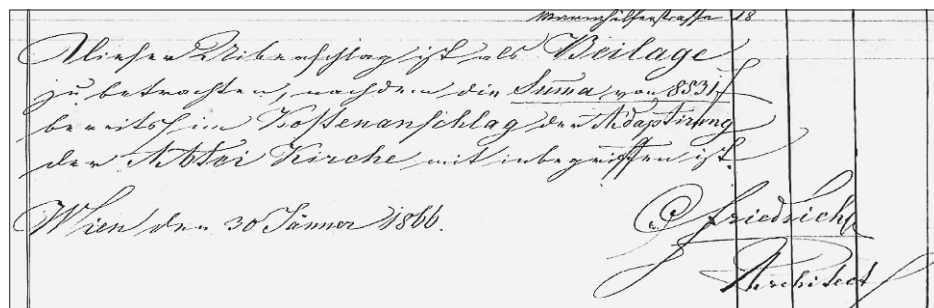 Mariahilferstrasse 18
Dieser Überschlag ist als Beilage
zu betrachten, nachdem die Suma von 8831 f
bereits im Kostenanschlag der Adaptirung
der Abtei Kirche mit inbegriffen ist.
Wien den 30 Jänner 1866.
Friedrich
Architect